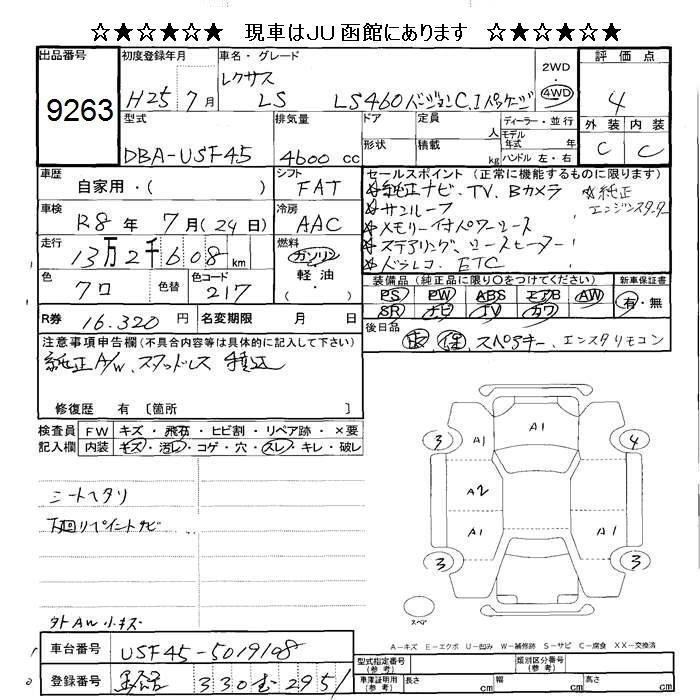 ☆★☆★☆★ 現車はJU函館にあります ☆★☆★☆★
出品番号 9263
初度登録年月 H25年7月
車名・グレード レクサス LS LS460 バージョンC.Iパッケージ
2WD 4WD
評価点 4
外装 C 内装 C
型式 DBA-USF45
排気量 4600 cc
ドア 形状
定員 人
積載 kg
ディーラー・並行
モデル年式 年
ハンドル 左・右
車歴 自家用・( )
シフト FAT
車検 R8年 7月(24日)
冷房 AAC
走行 13万2千608 km
燃料 ガソリン 軽油 ・( )
色 クロ 色替 色コード 217
R券 16.320円 名変期限 月 日
セールスポイント(正常に機能するものに限ります)
☆純正ナビ、TV、Bカメラ ☆純正エンジンスターター
☆サンルーフ
☆メモリー付パワーシート
☆ステアリング、シートヒーター
☆ドラレコ、ETC
装備品(純正品に限り○をつけてください) 新車保証書
PS PW ABS エアB AW 有・無
SR ナビ TV カワ
後日品 取 保 スペアキー、エンスタリモコン
注意事項申告欄(不具合内容等は具体的に記入して下さい)
純正A/W、スタッドレス 積込
修復歴 有〔箇所 〕
検査員記入欄 FW キズ・飛石・ヒビ割・リペア跡・×要
内装 キズ・汚レ・コゲ・穴・スレ・キレ・破レ
シートヘタリ
下廻リペイントサビ
外AW小キズ
3 A1 A1 A1 4
A2
3 A1 A1 3
スペア
A-キズ E-エクボ U-凹み W-補修跡 S-サビ C-腐食 XX-交換済
車台番号 USF45-5019108
登録番号 330 2951
型式指定番号(参考) 類別区分番号(参考)
車庫証明用(参考) 長さ cm 幅 cm 高さ cm